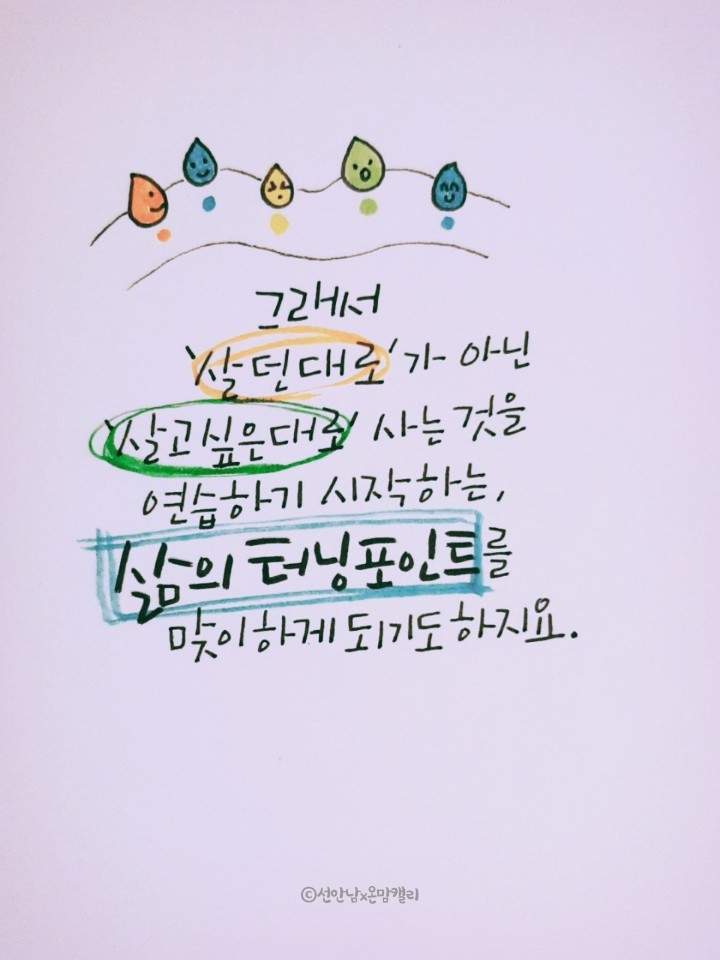 그래서
'살던대로'가 아닌
'살고싶은대로' 사는 것을
연습하기 시작하는,
삶의 터닝포인트를
맞이하게 되기도 하지요.
©선안남x온맘캘리